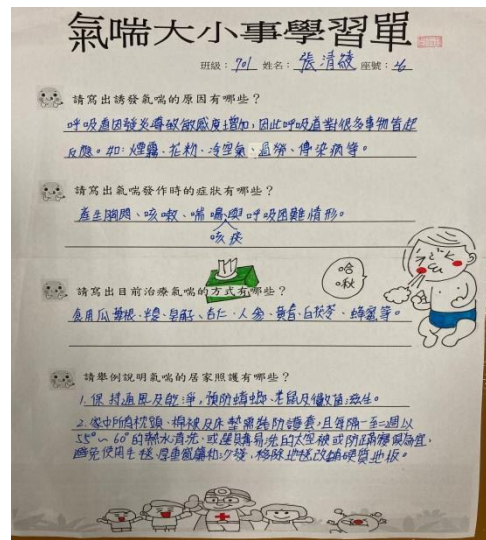 氣喘大小事學習單
班級：701 姓名：張清綾 座號：26
請寫出誘發氣喘的原因有哪些？
呼吸道因發炎導致敏感度增加，因此呼吸道對很多事物皆起
反應。如：煙霧、花粉、冷空氣、過勞、傳染病等。
請寫出氣喘發作時的症狀有哪些？
產生胸悶、咳嗽、喘鳴與呼吸困難情形。
咳痰
哈
啾
請寫出目前治療氣喘的方式有哪些？
食用瓜蔞根、半夏、、杏仁、人參、黃耆、白茯苓、蜂蜜等。
請舉例說明氣喘的居家照護有哪些？
1. 保持通風及乾淨，預防蟑螂、老鼠及黴菌滋生。
2. 家中所有枕頭、棉被及床墊需裝防護套，且每隔一至二週以
55°～60°的熱水清洗，或選具易洗的太空被或防蹣寢具為宜，
避免使用毛毯、厚重窗簾和沙發，移除地毯改鋪硬質地板。